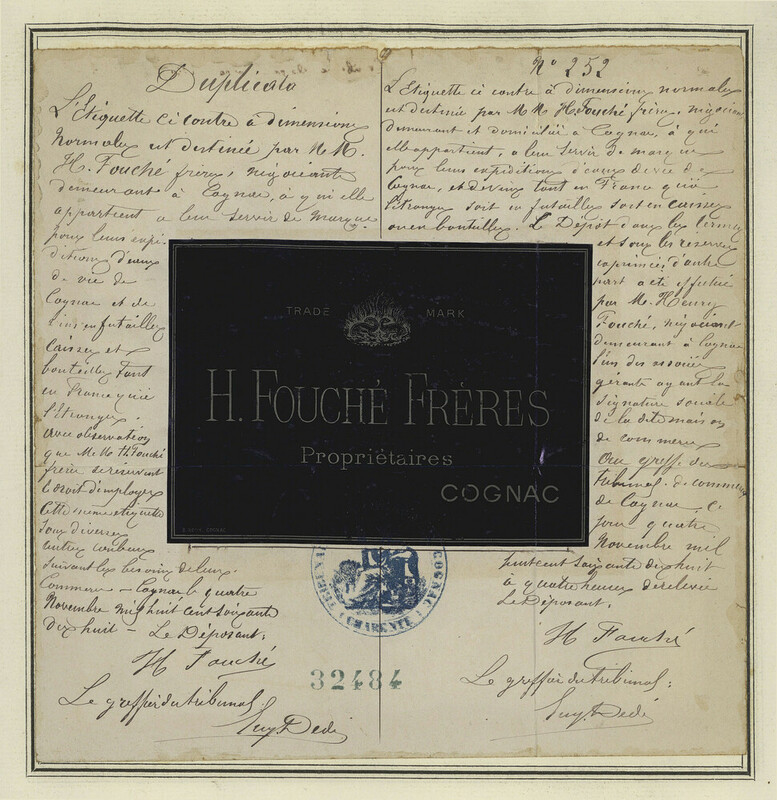 Duplicato
L'Etiquette ci contre a dimensions
Normales est destinée par MM.
H. Fouché frères, négociant
demeurant à Cognac, à qui elle
appartient a leur servir de marque
pour leurs expé-
ditions d'eaux
de vie de
Cognac et de
Vins en futailles
Caisses et
bouteilles tant
en France qu'à
l'étranger.
avec observation
que MM. H. Fouché
frères se réservent
le droit d'employer
Cette même etiquette
sous diverses
autres couleurs
suivant les besoins de leur
Commerce - Cognac le quatre
Novembre mil huit cent soixante
dix huit - Le Déposant,
H Fouché
Le greffier du tribunal:
No 252
L'Etiquette ci contre à dimensions normales
est destinée par MM. H. Fouché frères, négocian
demeurant et domiciliés à Cognac, à qui
elle appartient, a leur servir de marque
pour leurs expéditions d'eaux de vie de
Cognac, et de vins tant en France qu'à
l'étranger soit en futailles soit en caisses
ou en bouteilles. Le Dépôt dans les termes
et sous les réserves
exprimées d'autre
part a été effectué
par M. Henry
Fouché, négociant
demeurant à Cognac
l'un des associés
gérants ayant la
signature sociale
de la dite maison
de commerce
Au greffe du
tribunal de commerce
de Cognac, ce
jour quatre
Novembre mil
huit cent soixante dix huit
a quatre heures de relevée
Le Déposant,
H Fouché
Le greffier du tribunal:
TRADE MARK
H. FOUCHÉ FRÈRES
Propriétaires
COGNAC
COGNAC
CHARENTE
32484